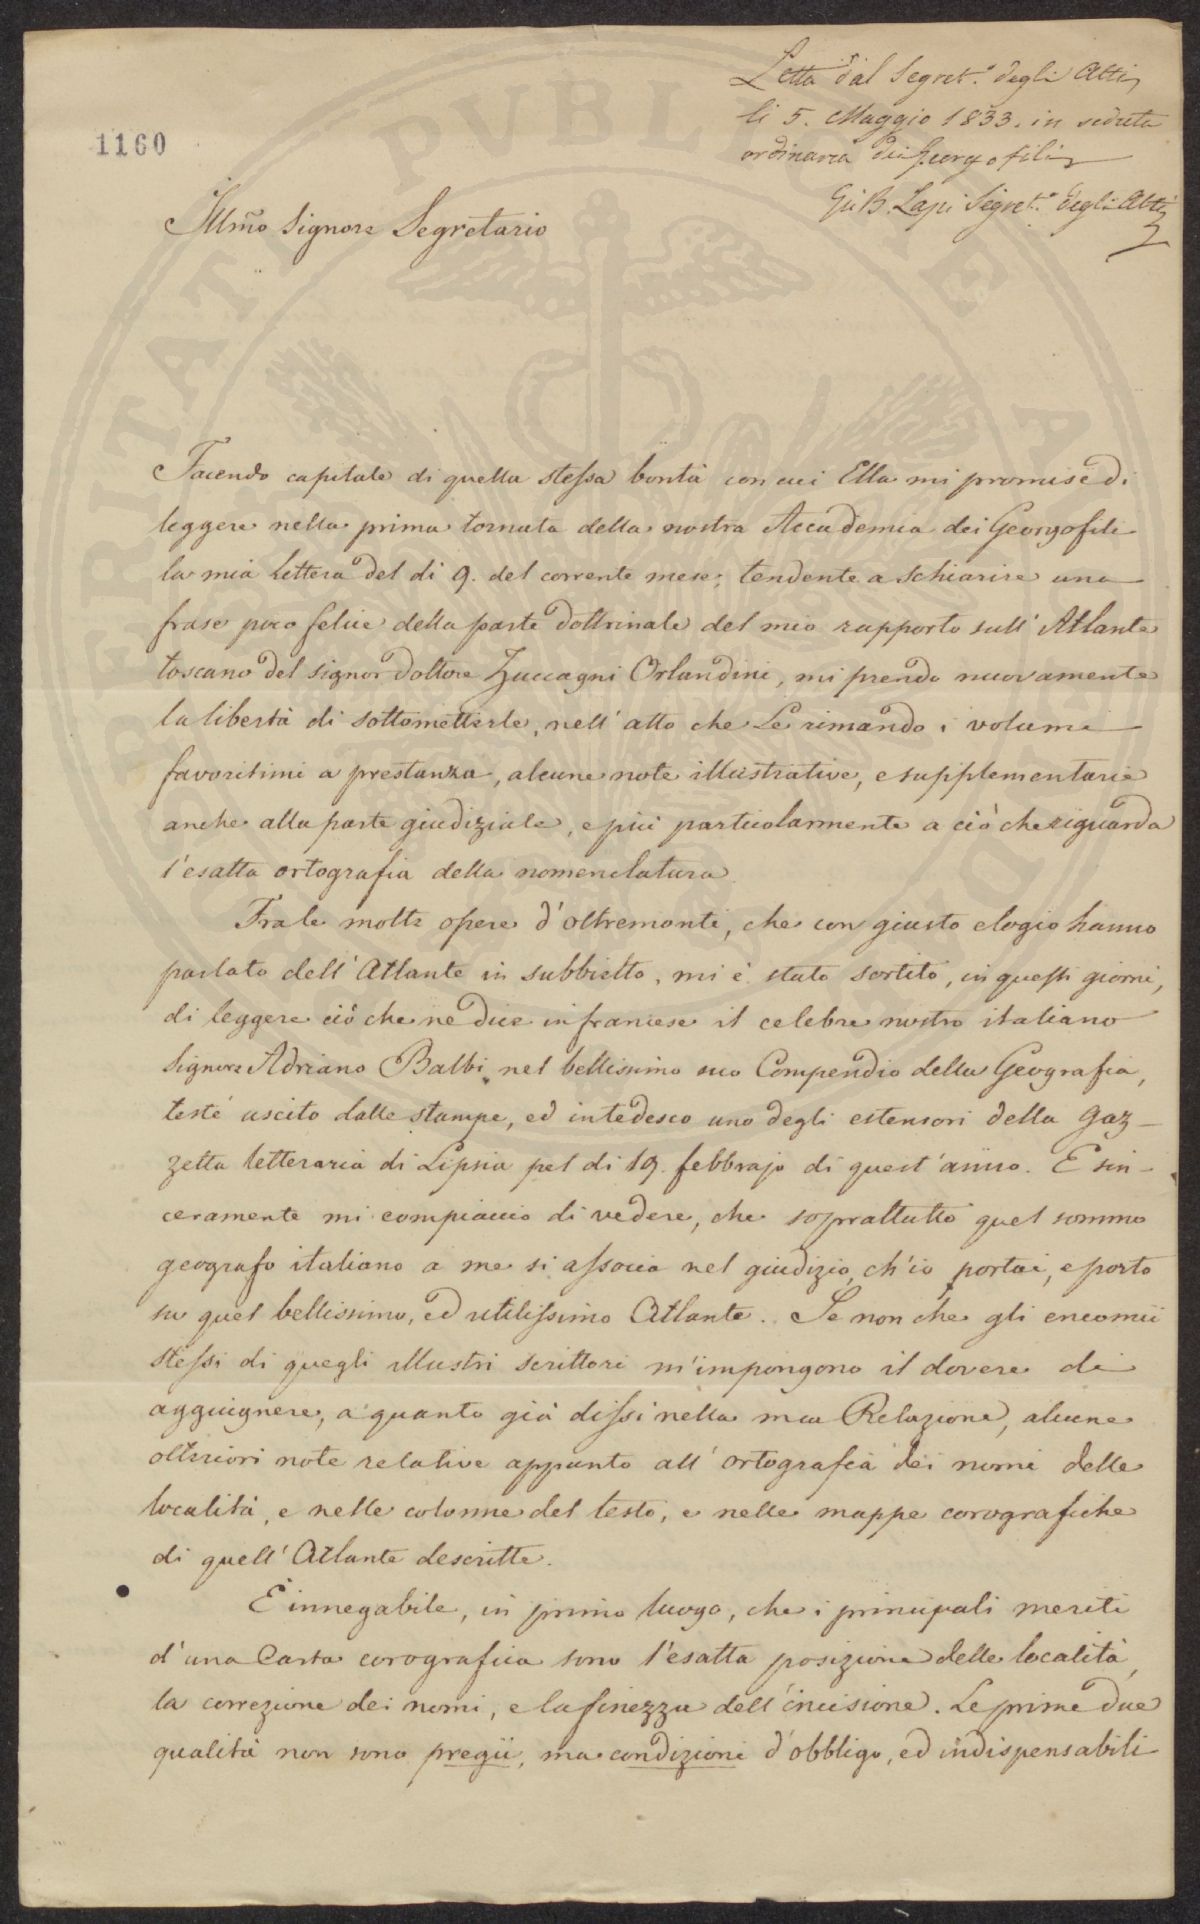 Letta dal Segret.º degli Atti
li 5. Maggio 1833. in seduta
ordinaria dei Georgofili
Gio B. Lapi Segret.º degli Atti
1160
Illmo Signore Segretario
Facendo capitale di quella stessa bontà con cui Ella mi promise di
leggere nella prima tornata della nostra Accademia dei Georgofili
la mia lettera del di 9. del corrente mese, tendente a schiarire una
frase poco felice della parte dottrinale del mio rapporto sull' Atlante
toscano del signor dottore Zuccagni Orlandini, mi prendo nuovamente
la libertà di sottometterle, nell' atto che Le rimando i volumi
favoritimi a prestanza, alcune note illustrative, e supplementarie
anche alla parte giudiziale, e più particolarmente a ciò che riguarda
l'esatta ortografia della nomenclatura.
Fra le molte opere d'oltremonti, che con giusto elogio hanno
parlato dell' Atlante in subbietto, mi è stato sortito, in questi giorni,
di leggere ciò che ne dice in francese il celebre nostro italiano
Signore Adriano Balbi nel bellissimo suo Compendio della Geografia,
testé uscito dalle stampe, ed in tedesco uno degli estensori della Gaz-
zetta letteraria di Lipsia pel di 19. febbrajo di quest' anno. E sin-
ceramente mi compiaccio di vedere, che soprattutto quel sommo
geografo italiano a me si associa nel giudizio, ch'io portai, e porto
su quel bellissimo, ed utilissimo Atlante. Se non che gli encomii
stessi di quegli illustri scrittori m'impongono il dovere di
aggiugnere, a quanto già dissi nella mia Relazione, alcune
ulteriori note relative appunto all' ortografia dei nomi delle
località, e nelle colonne del testo, e nelle mappe corografiche
di quell' Atlante descritte.
È innegabile, in primo luogo, che i principali meriti
d'una Carta corografica sono l'esatta posizione delle località,
la correzione dei nomi, e la finezza dell' incisione. Le prime due
qualità non sono pregii, ma condizioni d'obbligo, ed indispensabili
PVBLICAE